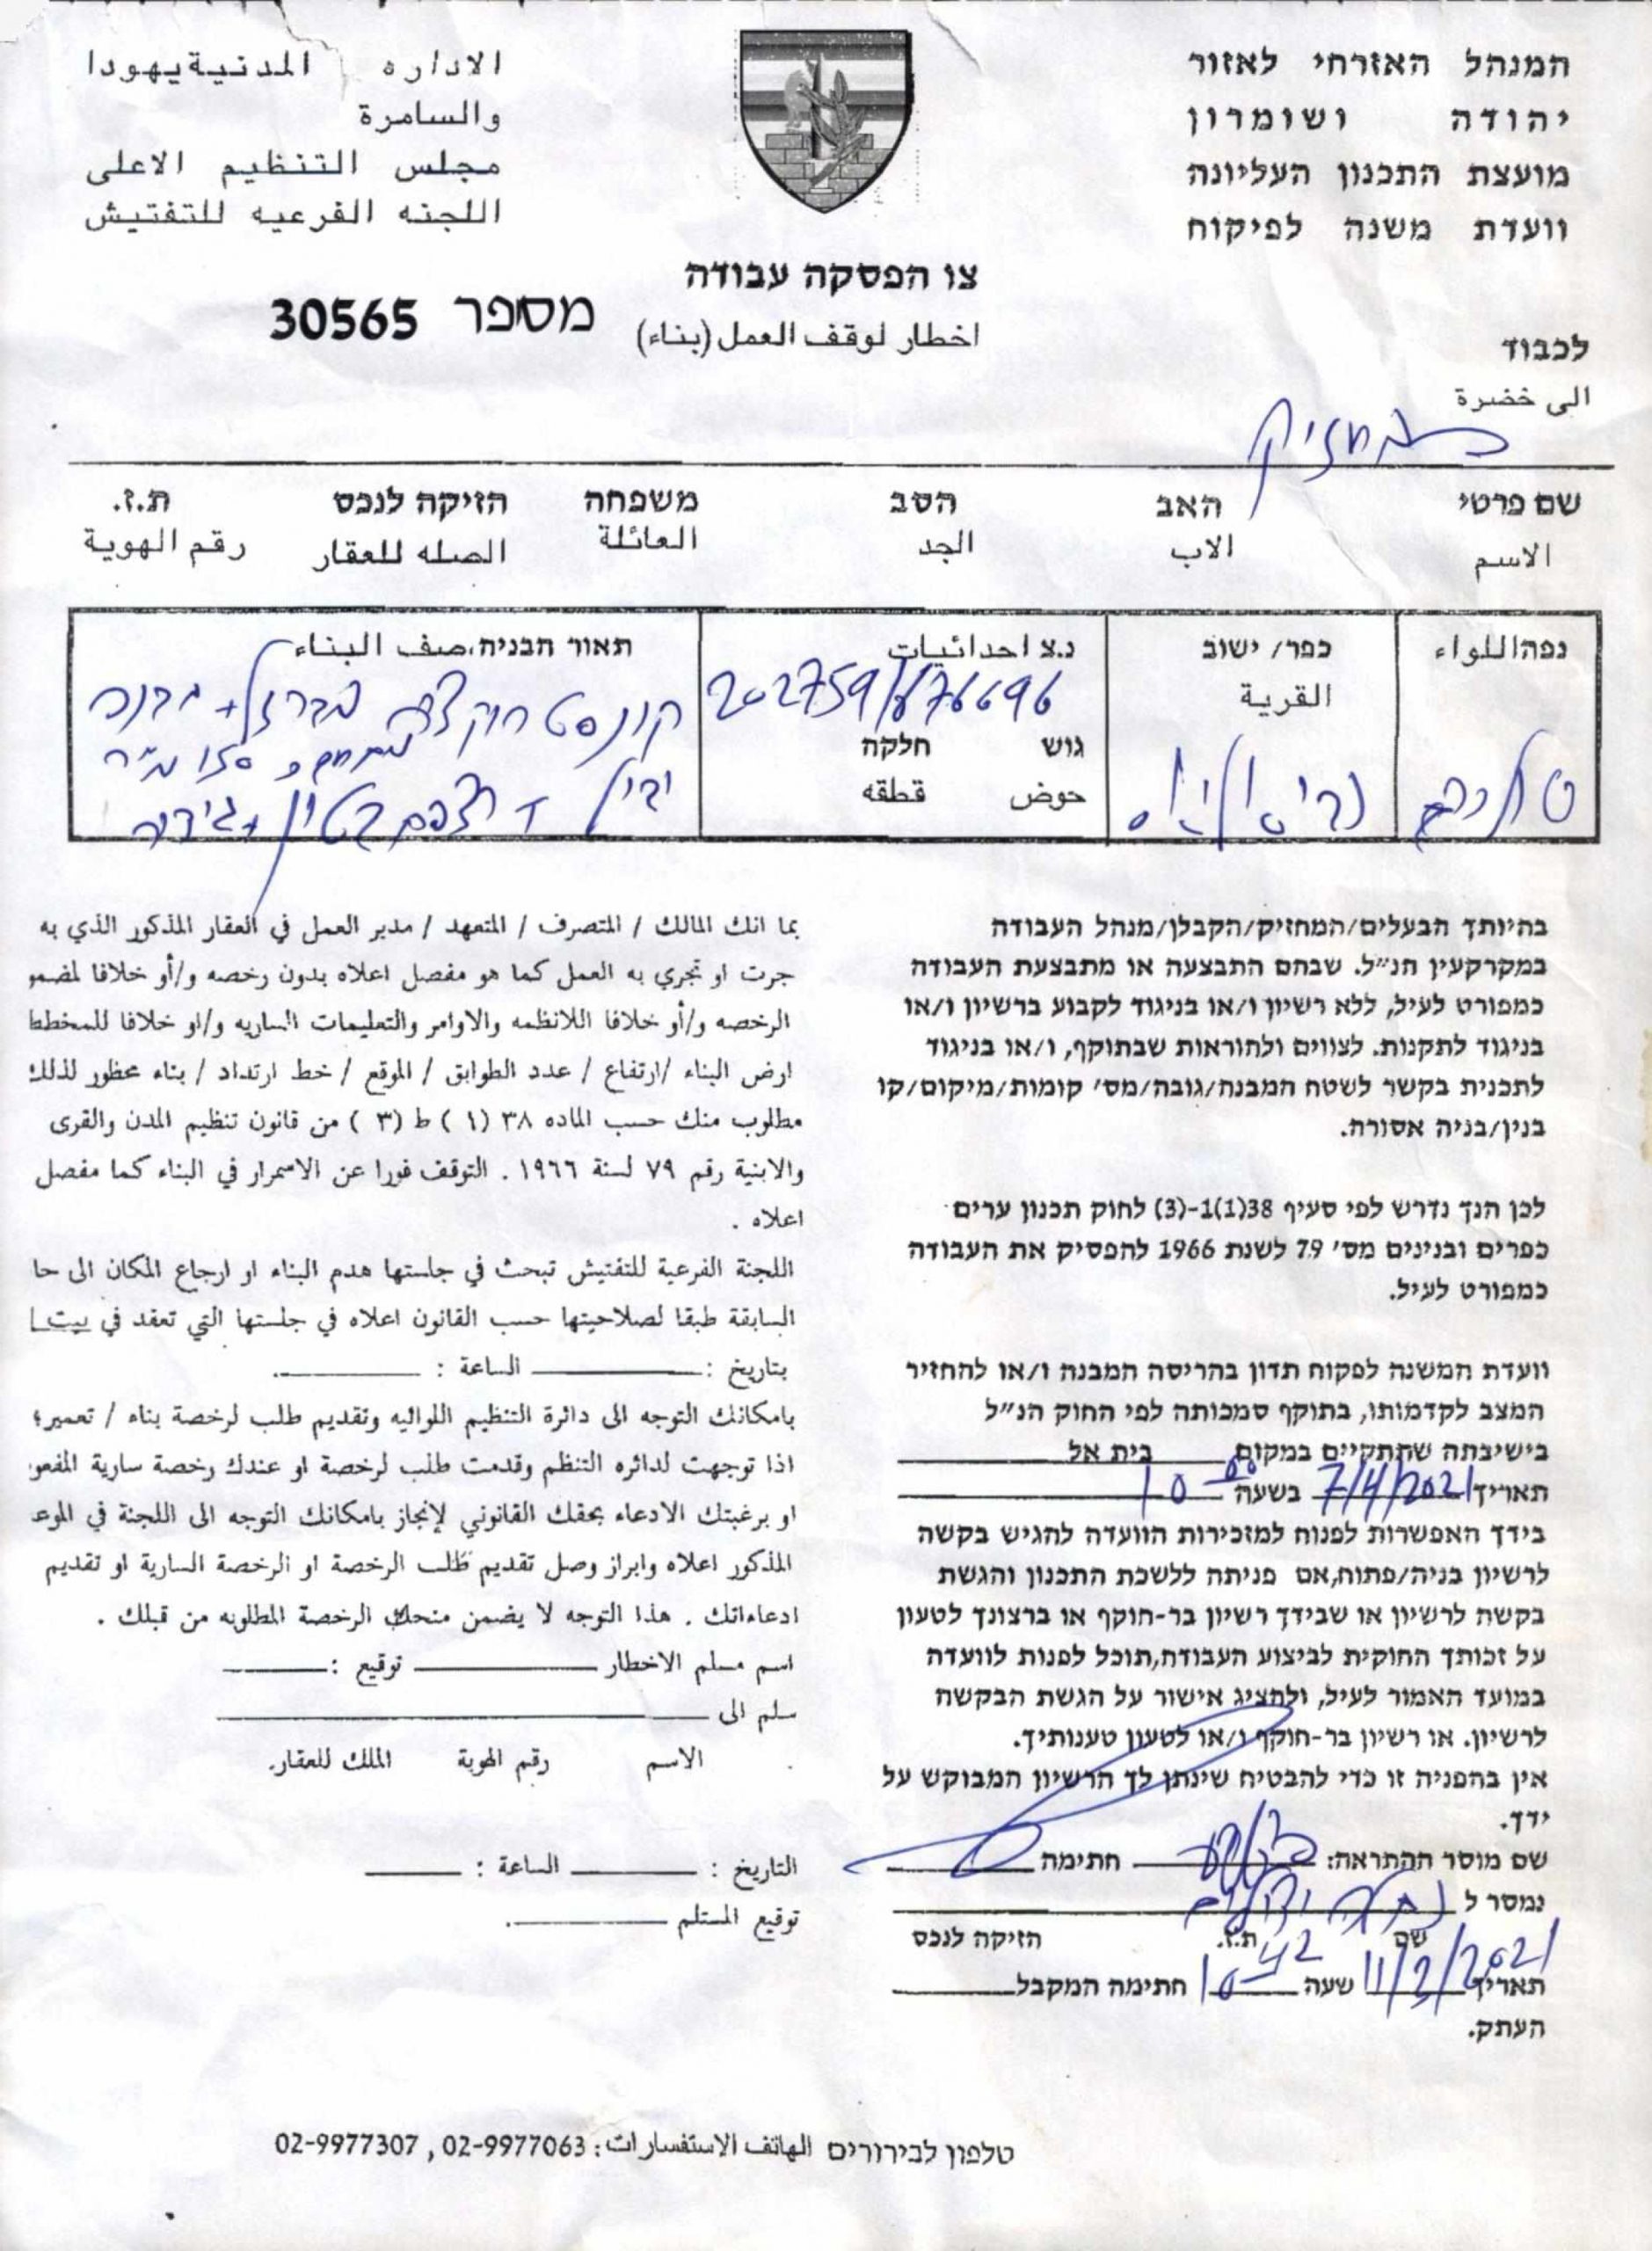 המנהל האזרחי לאזור
יהודה ושומרון
מועצת התכנון העליונה
וועדת משנה לפיקוח
الاداره المدنية يهودا
والسامرة
مجلس التنظيم الاعلى
اللجنه الفرعيه للتفتيش
צו הפסקה עבודה
اخطار لوقف العمل (بناء)
מספר 30565
לכבוד
الى خضرة
המחזיק
שם פרטי האב הסב משפחה הזיקה לנכס ת.ז.
الاسم الاب الجد العائلة الصله للعقار رقم الهوية
נפה اللواء
טולכרם
כפר/ ישוב
القرية
נ.צ احداثيات
202759/676696
גוש חלקה
حوض قطقه
תאור הבניה، صف البناء
בהיותך הבעלים/המחזיק/הקבלן/מנהל העבודה
במקרקעין הנ״ל. שבהם התבצעה או מתבצעת העבודה
כמפורט לעיל, ללא רשיון ו/או בניגוד לקבוע ברשיון ו/או
בניגוד לתקנות. לצווים ולהוראות שבתוקף, ו/או בניגוד
לתכנית בקשר לשטח המבנה/גובה/מס׳ קומות/מיקום/קו
בנין/בניה אסורה.
לכן הנך נדרש לפי סעיף 38(1)1-(3) לחוק תכנון ערים
כפרים ובנינים מס׳ 79 לשנת 1966 להפסיק את העבודה
כמפורט לעיל.
וועדת המשנה לפקוח תדון בהריסה המבנה ו/או להחזיר
המצב לקדמותו, בתוקף סמכותה לפי החוק הנ״ל
בישיבתה שתתקיים במקום בית אל
תאריך 7/4/2021 בשעה 10 00
בידך האפשרות לפנות למזכירות הוועדה להגיש בקשה
לרשיון בניה/פתוח,אם פניתה ללשכת התכנון והגשת
בקשה לרשיון או שבידך רשיון בר-חוקף או ברצונך לטעון
על זכותך החוקית לביצוע העבודה,תוכל לפנות לוועדה
במועד האמור לעיל, ולהציג אישור על הגשת הבקשה
לרשיון. או רשיון בר-חוקף ו/או לטעון טענותיך.
אין בהפניה זו כדי להבטיח שינתן לך הרשיון המבוקש על
ידך.
שם מוסר ההתראה: חתימה
נמסר ל
שם ת.ז. הזיקה לנכס
תאריך 11/2/2021 שעה 10 42 חתימה המקבל
העתק.
بما انك المالك / المتصرف / المتعهد / مدير العمل في العقار المذكور الذي به
جرت او تجري به العمل كما هو مفصل اعلاه بدون رخصه و/أو خلافا لمضمو
الرخصه و/أو خلافا اللانظمه والاوامر والتعليمات الساريه و/او خلافا للمخطط
ارض البناء /ارتفاع / عدد الطوابق / الموقع / خط ارتداد / بناء محظور لذلك
مطلوب منك حسب الماده ٣٨ (١) ط (٣) من قانون تنظيم المدن والقرى
والابنية رقم ٧٩ لسنة ١٩٦٦ . التوقف فورا عن الاسمرار في البناء كما مفصل
اعلاه .
اللجنة الفرعية للتفتيش تبحث في جلستها هدم البناء او ارجاع المكان الى حا
السابقة طبقا لصلاحيتها حسب القانون اعلاه في جلستها التي تعقد في بيت ا
بتاريخ : الساعة :
بامكانك التوجه الى دائرة التنظيم اللوائيه وتقديم طلب لرخصة بناء / تعمير؛
اذا توجهت لدائره التنظم وقدمت طلب لرخصة او عندك رخصة سارية المفعو
او برغبتك الادعاء بحقك القانوني لإنجاز بامكانك التوجه الى اللجنة في الموعد
المذكور اعلاه وابراز وصل تقديم طلب الرخصة او الرخصة السارية او تقديم
ادعاءاتك . هذا التوجه لا يضمن منحك الرخصة المطلوبه من قبلك .
اسم مسلم الاخطار توقيع :
سلم الى
الاسم رقم الهوية الملك للعقار.
التاريخ : الساعة :
توقيع المستلم
טלפון לבירורים الهاتف الاستفسارات: 02-9977063 , 02-9977307